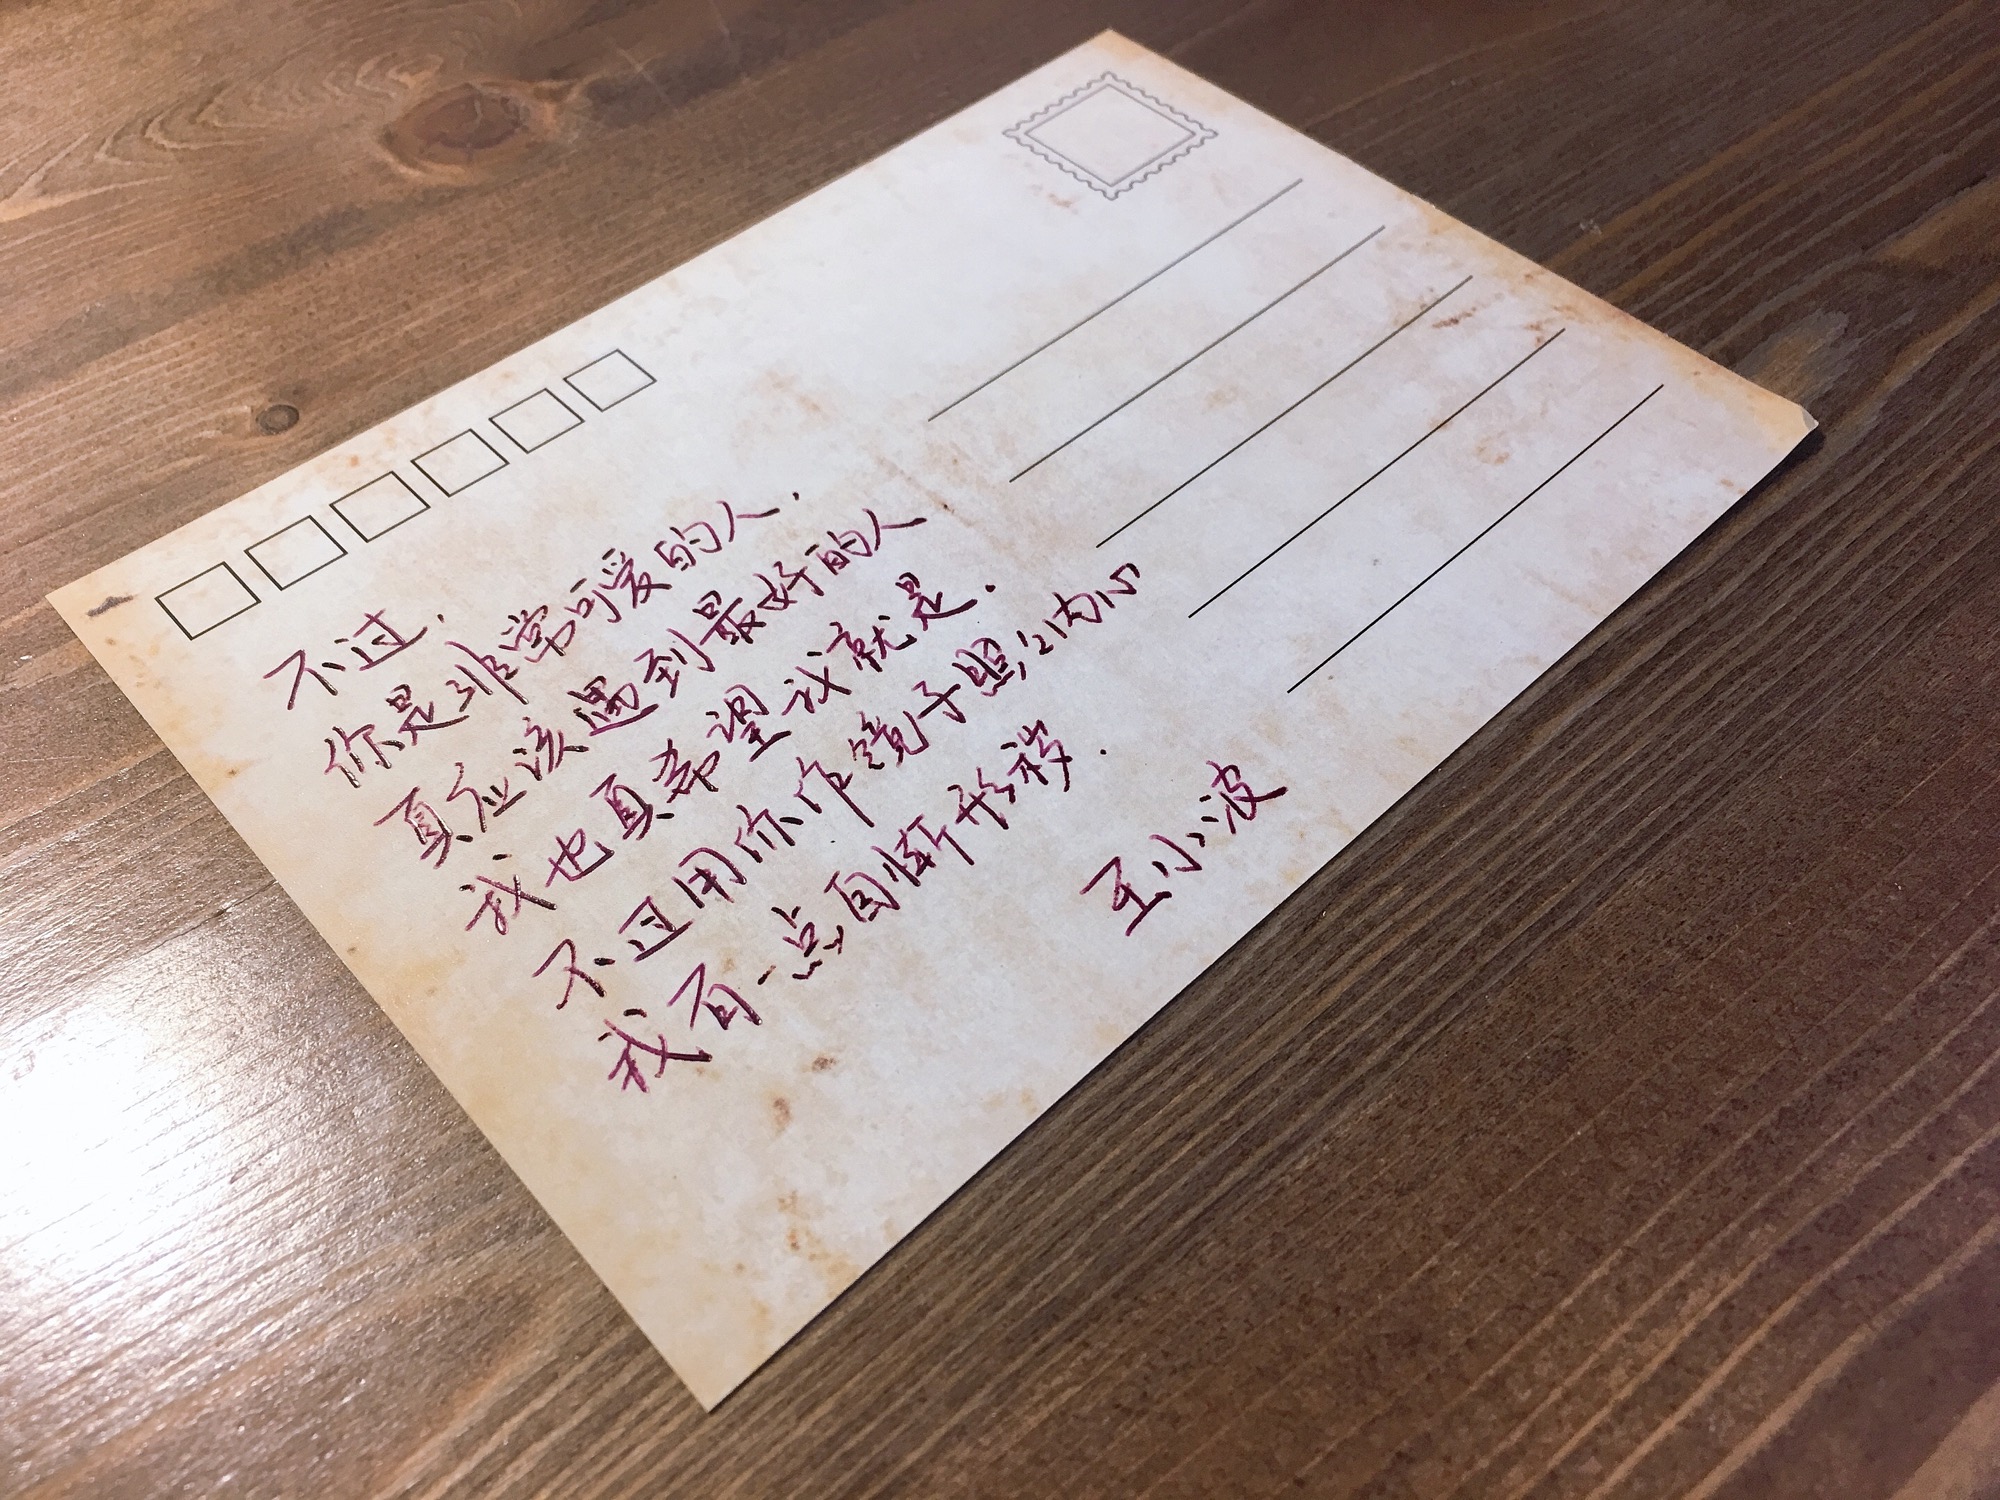 不过.
你是非常可爱的人.
真应该遇到最好的人
我也真希望我就是.
不过用你作镜子照照内心
我有一点自惭形秽.
王小波